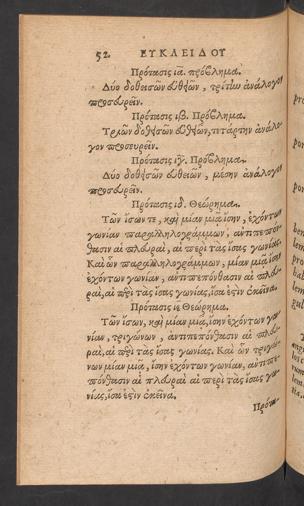 52. ΕΥΚΛΕΙΔΟΥ
Πρότασις ια. πρόβλημα.
Δύο δοθεισῶν εὐθειῶν, τρίτην ἀνάλογον
προσευρεῖν.
Πρότασις ιβ. Πρόβλημα.
Τριῶν δοθεισῶν εὐθειῶν, τετάρτην ἀνάλο-
γον προσευρεῖν.
Πρότασις ιγ. Πρόβλημα.
Δύο δοθεισῶν εὐθειῶν, μέσην ἀνάλογον
προσευρεῖν.
Πρότασις ιδ. Θεώρημα.
Τῶν ἴσων τε, καὶ μίαν μιᾷ ἴσην, ἐχόντων
γωνίαν παραλληλογράμμων, ἀντιπεπόν-
θασιν αἱ πλευραὶ, αἱ περὶ τὰς ἴσας γωνίας.
Καὶ ὧν παραλληλογράμμων, μίαν μιᾷ ἴσην
ἐχόντων γωνίαν, ἀντιπεπόνθασιν αἱ πλευ-
ραὶ, αἱ περὶ τὰς ἴσας γωνίας, ἴσα ἐστὶν ἐκεῖνα.
Πρότασις ιε Θεώρημα.
Τῶν ἴσων, καὶ μίαν μιᾷ, ἴσην ἐχόντων γω-
νίαν, τριγώνων, ἀντιπεπόνθασιν αἱ πλευ-
ραὶ, αἱ περὶ τὰς ἴσας γωνίας. Καὶ ὧν τριγώ-
νων μίαν μιᾷ, ἴσην ἐχόντων γωνίαν, ἀντιπε-
πόνθασιν αἱ πλευραὶ αἱ περὶ τὰς ἴσας γω-
νίας, ἴσα ἐστὶν ἐκεῖνα.
Πρότα-